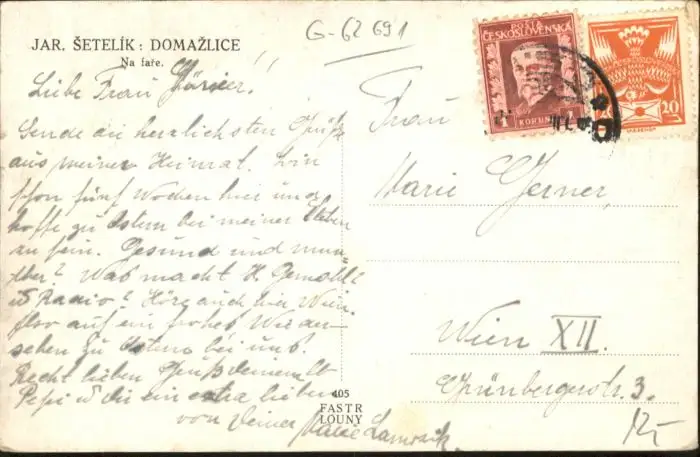 G-62691
JAR. ŠETELÍK: DOMAŽLICE
Na faře.
POŠTA
ČESKOSLOVENSKÁ
1 KORUNA
ČESKOSLOVENSKO
20
Liebe Frau !!
Sende die herzlichsten Grüße
aus meiner Heimat. Bin
schon fünf Wochen hier und
hoffe zu Ostern bei meiner lieben
zu sein. Gesund und mun-
ter? Was macht H. Gemahl?
u Radio? Höre auch hier Wien.
Also auf ein frohes Wieder-
sehen zu Ostern bei uns.
Recht lieben Gruß
Pepi u die ein extra lieben
von Deiner Marie
405
FASTR
LOUNY
Frau
Marie Gerner,
Wien XII.
Grünbergerstr. 3.
12,-